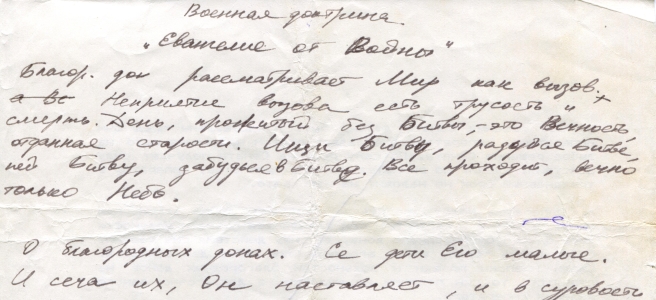 Военная доктрина.
„Евателие от Войны"
Благор. дон рассматривает Мир как вызов.
Неприятие вызова есть трусость и
смерть. День, прожитый без Битвы, – это Вечность,
отданная старости. Ищи Битву, радуйся Битве,
пей Битву, забудься в Битве. Все проходит, вечно
только Небо.
О благородных донах. Се дети Его малые.
И сеча их, Он наставляет, и в суровости